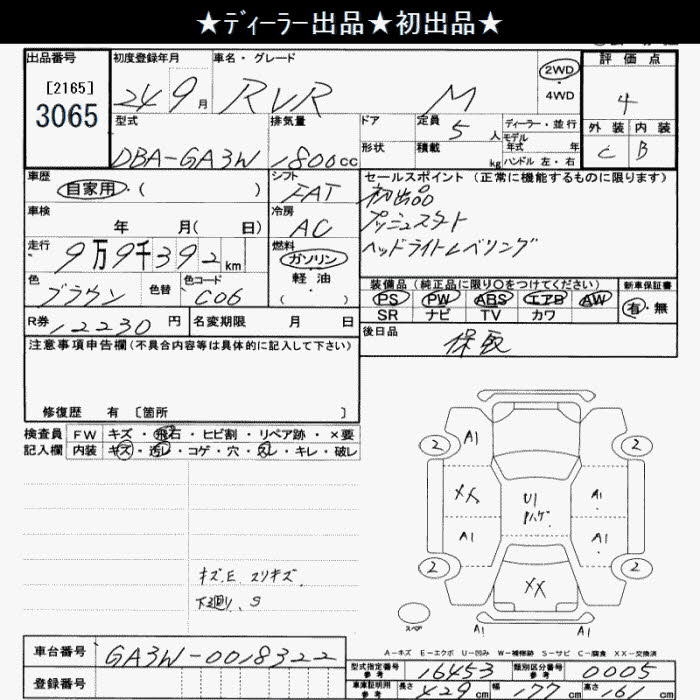 ★ディーラー出品★初出品★
出品番号 [2165] 3065
初度登録年月 24 9月
車名・グレード RVR M
2WD・4WD
評価点 4
外装 C 内装 B
型式 DBA-GA3W
排気量 1800cc
ドア 形状
定員 5人
積載 kg
ディーラー・並行
モデル年式 年
ハンドル 左・右
車歴 自家用・(  )
シフト FAT
車検 年 月( 日)
冷房 AC
走行 9万9千392km
燃料 ガソリン・軽油・(  )
色 ブラウン 色替 色コード C06
R券 12230円
名変期限 月 日
セールスポイント(正常に機能するものに限ります)
初出品
プッシュスタート
ヘッドライトレベリング
装備品(純正品に限り○をつけてください)
PS PW ABS エアB AW
SR ナビ TV カワ
新車保証書 有・無
後日品 保取
注意事項申告欄(不具合内容等は具体的に記入して下さい)
修復歴 有 [箇所 ]
検査員記入欄
FW キズ・飛石・ヒビ割・リペア跡・×要
内装 キズ・汚レ・コゲ・穴・スレ・キレ・破レ
キズ.E スリキズ.
下廻り.S
2 A1 2
XX U1 ハゲ A1
A1 A1
2 XX 2
スペア
A1 A1
A-キズ E-エクボ U-凹み W-補修跡 S-サビ C-腐食 XX-交換済
車台番号 GA3W-0018322
登録番号
型式指定番号 参考 16453
類別区分番号 参考 0005
車庫証明用 参考 長さ 429cm 幅 177cm 高さ cm